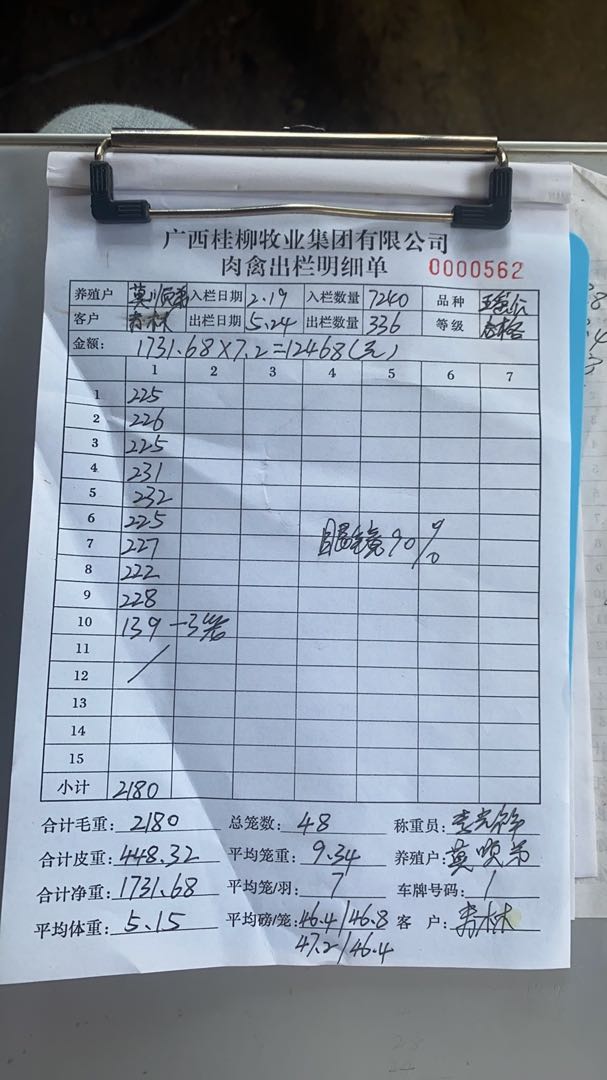 广西桂柳牧业集团有限公司
肉禽出栏明细单 0000562
养殖户 莫顺弟 入栏日期 2.19 入栏数量 7240 品种
客户 寿林 出栏日期 5.24 出栏数量 336 等级 合格
金额: 1731.68×7.2=12468(元)
1 2 3 4 5 6 7
1 225
2 226
3 225
4 231
5 232
6 225
7 227 眼镜90%
8 222
9 228
10 139 -3笼
11
12
13
14
15
小计 2180
合计毛重: 2180 总笼数: 48 称重员:
合计皮重: 448.32 平均笼重: 9.34 养殖户: 莫顺弟
合计净重: 1731.68 平均笼/羽: 7 车牌号码: 1
平均体重: 5.15 平均磅/笼: 46.4/46.8 客 户: 寿林
47.2/46.4